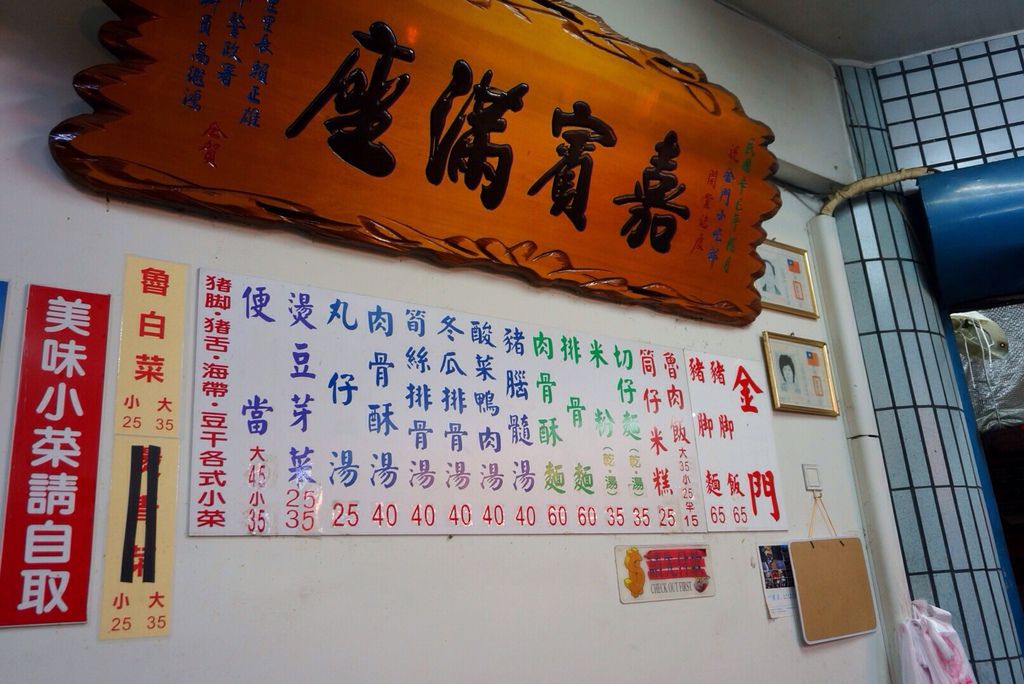 嘉賓滿座
開業誌慶
仝賀
金門
豬脚飯 65
豬脚麵 65
魯肉飯 大35 小25 半15
筒仔米糕 25
切仔麵(乾·湯) 35
米粉(乾·湯) 35
排骨麵 60
肉骨酥麵 60
豬腦髓湯 40
酸菜鴨肉湯 40
冬瓜排骨湯 40
筍絲排骨湯 40
肉骨酥湯 40
丸仔湯 25
燙豆芽菜 25 35
便當 大45 小35
猪脚·猪舌·海帶·豆干各式小菜
魯白菜
小 25 大 35
小 25 大 35
美味小菜請自取
CHECK OUT FIRST